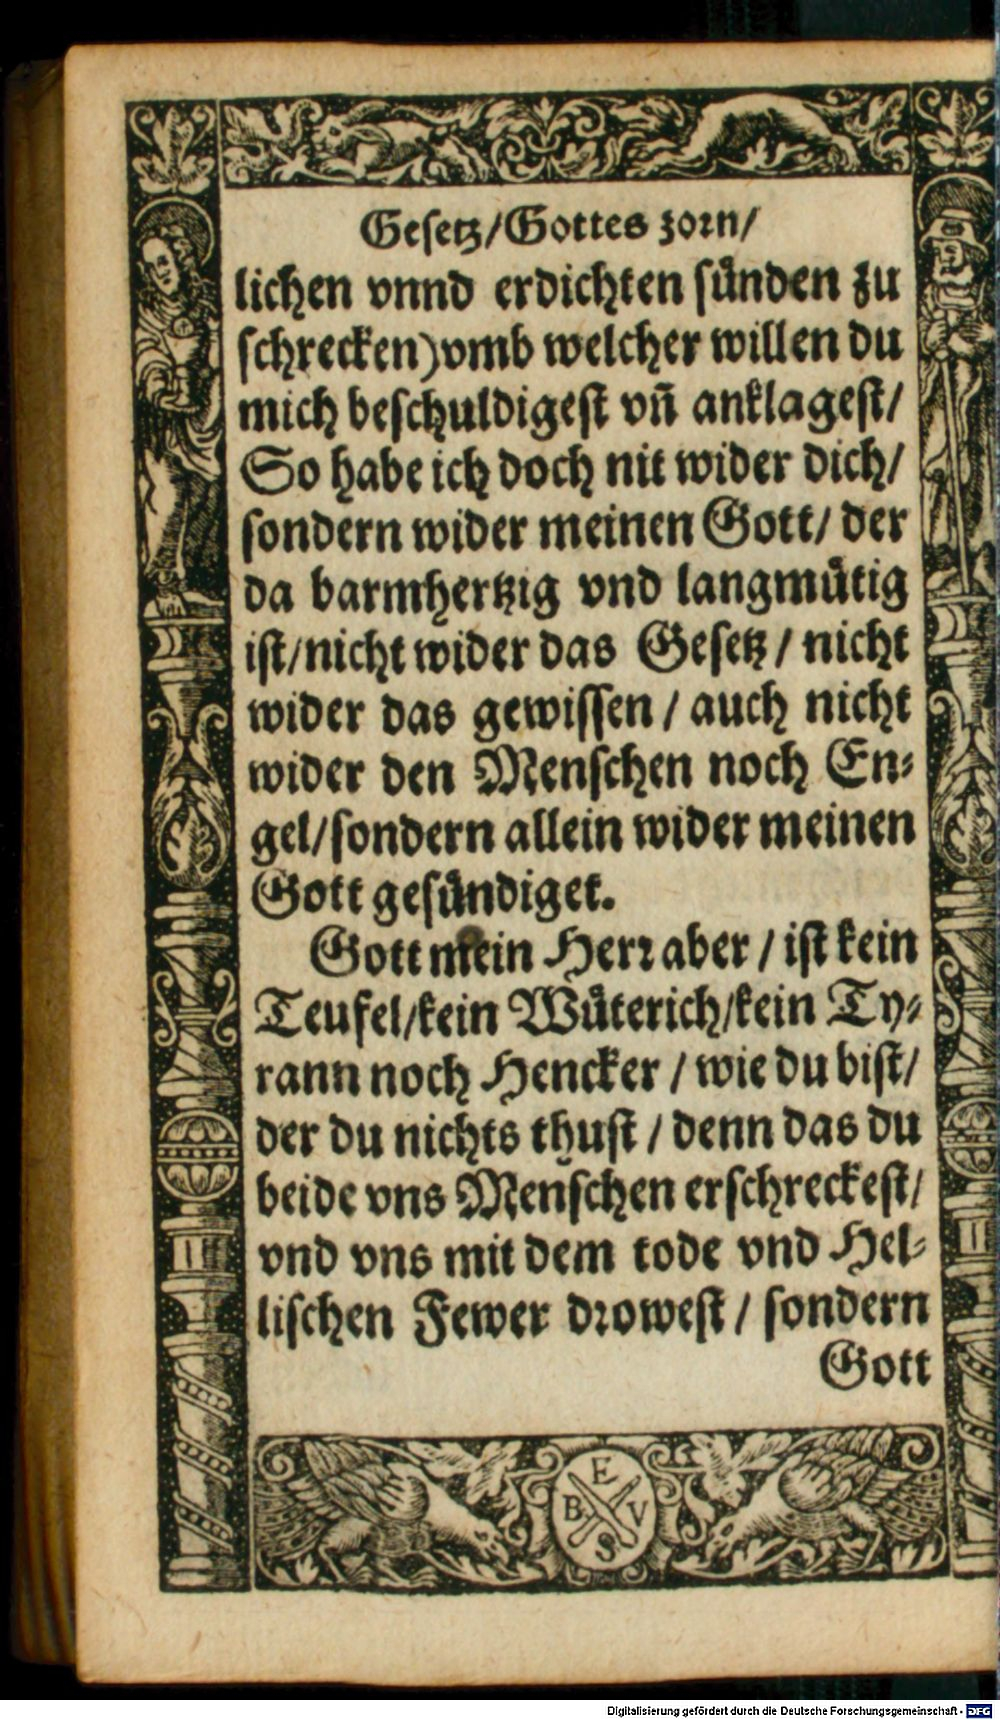 Gesetz/Gottes zorn/
lichen vnnd erdichten sünden zu
schrecken)vmb welcher willen du
mich beschuldigest vn̄ anklagest/
So habe ich doch nit wider dich/
sondern wider meinen Gott/ der
da barmhertzig vnd langmütig
ist/nicht wider das Gesetz/ nicht
wider das gewissen/ auch nicht
wider den Menschen noch En-
gel/sondern allein wider meinen
Gott gesündiget.
Gott mein Herr aber/ ist kein
Teufel/kein Wüterich/kein Ty-
rann noch Hencker/ wie du bist/
der du nichts thust/ denn das du
beide vns Menschen erschreckest/
vnd vns mit dem tode vnd Hel-
lischen Fewer drowest/ sondern
Gott
E
B V
S
Digitalisierung gefördert durch die Deutsche Forschungsgemeinschaft - DFG